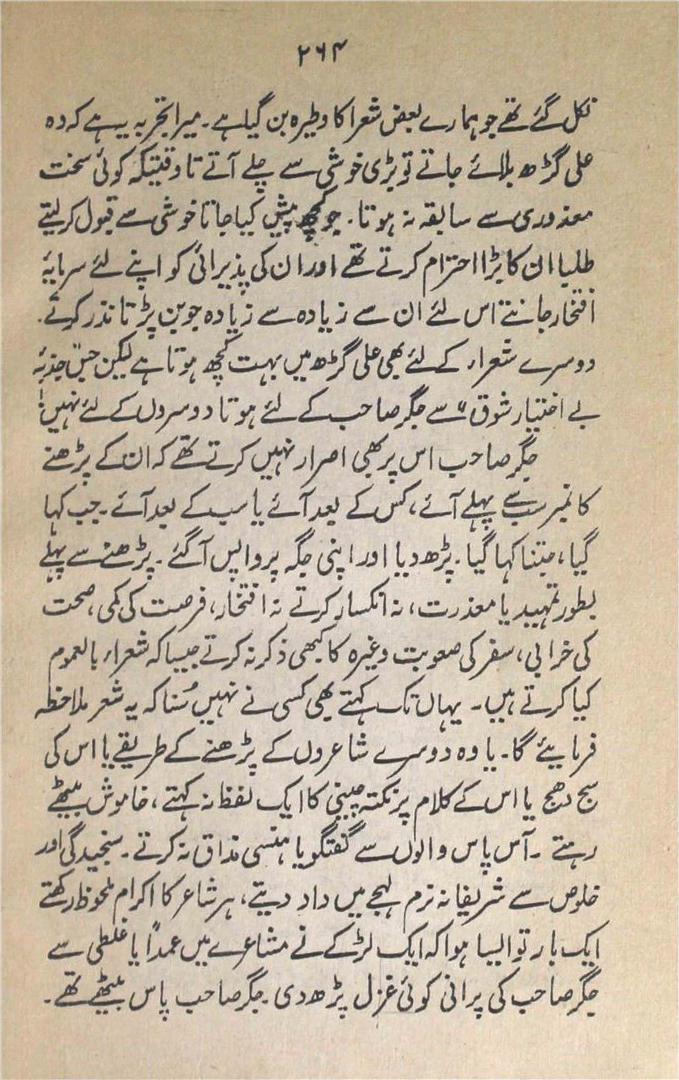 ۲۶۴
نکل گئے تھے جو ہمارے بعض شعرا کا وطیرہ بن گیا ہے۔ میرا تجربہ یہ ہے کہ وہ
علی گڑھ بلائے جاتے تو بڑی خوشی سے چلے آتے تا وقتیکہ کوئی سخت
معذوری سے سابقہ نہ ہوتا۔ جو کچھ پیش کیا جاتا خوشی سے قبول کر لیتے
طلبا ان کا بڑا احترام کرتے تھے اور ان کی پذیرائی کو اپنے لئے سرمایۂ
افتخار جانتے اس لئے ان سے زیادہ سے زیادہ جو بن پڑتا نذر کرتے۔
دوسرے شعراء کے لئے بھی علی گڑھ میں بہت کچھ ہوتا ہے لیکن جس جذبۂ
بے اختیار شوق" سے جگر صاحب کے لئے ہوتا دوسروں کے لئے نہیں!
جگر صاحب اس پر بھی اصرار نہیں کرتے تھے کہ ان کے پڑھنے
کا نمبر سب سے پہلے آئے، کس کے بعد آئے یا سب کے بعد آئے۔ جب کہا
گیا، جتنا کہا گیا۔ پڑھ دیا اور اپنی جگہ پر واپس آگئے۔ پڑھنے سے پہلے
بطور تمہید یا معذرت، نہ انکسار کرتے نہ افتخار، فرصت کی کمی، صحت
کی خرابی، سفر کی صعوبت وغیرہ کا کبھی ذکر نہ کرتے جیسا کہ شعراء بالعموم
کیا کرتے ہیں۔ یہاں تک کہتے بھی کسی نے نہیں سُنا کہ یہ شعر ملاحظہ
فرمایئے گا۔ یا وہ دوسرے شاعروں کے پڑھنے کے طریقے یا اس کی
سج دھج یا اس کے کلام پر نکتہ چینی کا ایک لفظ نہ کہتے، خاموش بیٹھے
رہتے۔ آس پاس والوں سے گفتگو یا ہنسی مذاق نہ کرتے۔ سنجیدگی اور
خلوص سے شریفانہ نرم لہجے میں داد دیتے، ہر شاعر کا اکرام ملحوظ رکھتے
ایک بار تو ایسا ہوا کہ ایک لڑکے نے مشاعرے میں عمداً یا غلطی سے
جگر صاحب کی پرانی کوئی غزل پڑھ دی۔ جگر صاحب پاس بیٹھے تھے۔